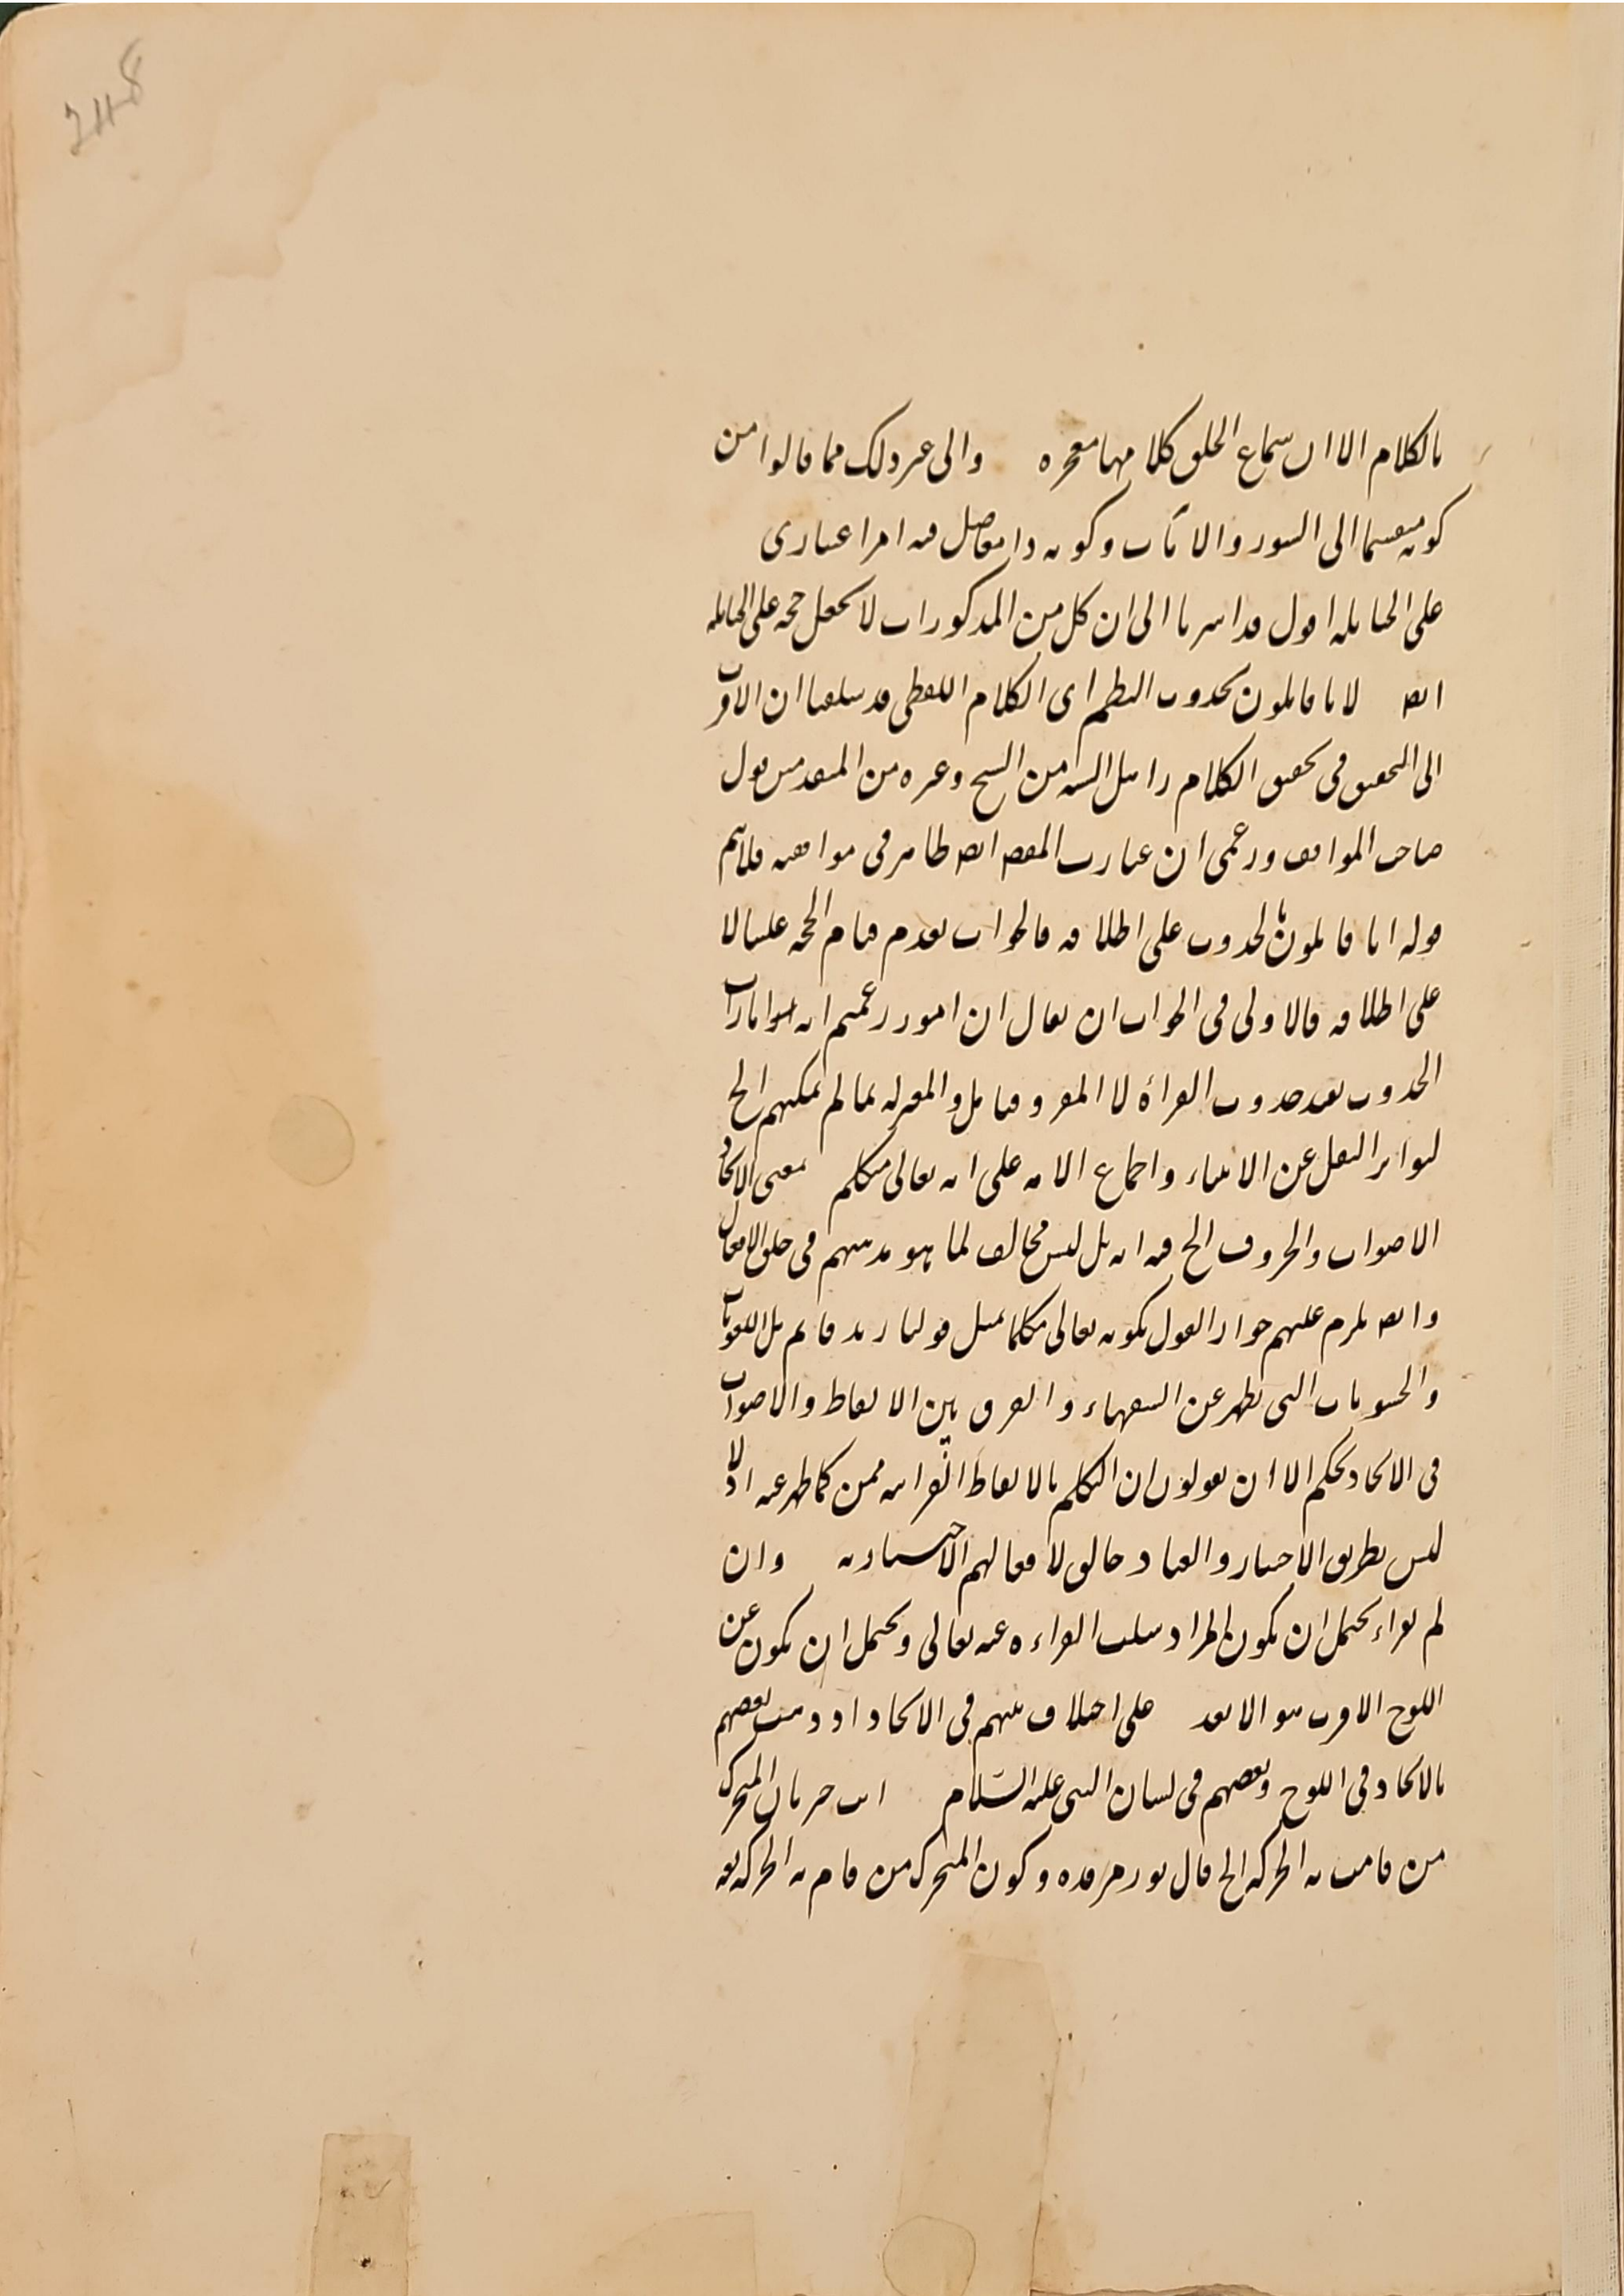 248
بالكلام الا ان سماع الخلق كلامها معجزه والى غير ذلك مما قالوا من
كونه منقسما الى السور والآيات وكونه ذا مفاصل فيه امر اعتبارى
على الحنابله اقول قد اشرنا الى ان كل من المذكورات لا يجعل حجه على الحنابله
ايضا لانا قائلون بحدوث النظم اى الكلام اللفظى قد سلف ان الاقرب
الى التحقيق فى تحقيق الكلام راى اهل السنه من الشيخ وغيره من المتقدمين قول
صاحب المواقف وزعمى ان عبارت المص ايضا ظاهر فى موافقه فلا يتم
قوله انا قائلون بالحدوث على اطلاقه فالجواب بعدم قيام الحجه علينا لا
على اطلاقه فالاولى فى الجواب ان يقال ان امور زعمتم انها امارات
الحدوث يفيد حدوث القراءة لا المقرو قيامل والمعتزله لما لم يمكنهم الخ
لتواتر النقل عن الانبياء واجماع الامه على انه تعالى متكلم بمعنى الايجاد
الاصوات والحروف الخ فيه انه بل ليس مخالف لما هو مذهبهم فى خلق الافعال
وايضا يلزم عليهم جواز القول بكونه تعالى متكلما بمثل قولنا زيد قائم بل اللغويات
والحشويات التى يظهر عن السفهاء والفرق بين الالفاظ والاصوات
فى الايجاد تحكم الا ان يقولون ان التكلم بالالفاظ القرآنيه ممن كما ظهر عنه اولا
ليس بطريق الاختيار والعباد خالق لافعالهم الاختياريه وان
لم يقراء يحتمل ان يكون المراد سلب القراءه عنه تعالى ويحتمل ان يكون عن
اللوح الاقرب هو الابعد على اختلاف بينهم فى الايجاد اذ ذهب بعضهم
بالايجاد فى اللوح وبعضهم فى لسان النبى عليه السّلام انت خبير بان المتحرك
من قامت به الحركه الخ قال نور مرقده وكون المتحرك من قام به الحركه